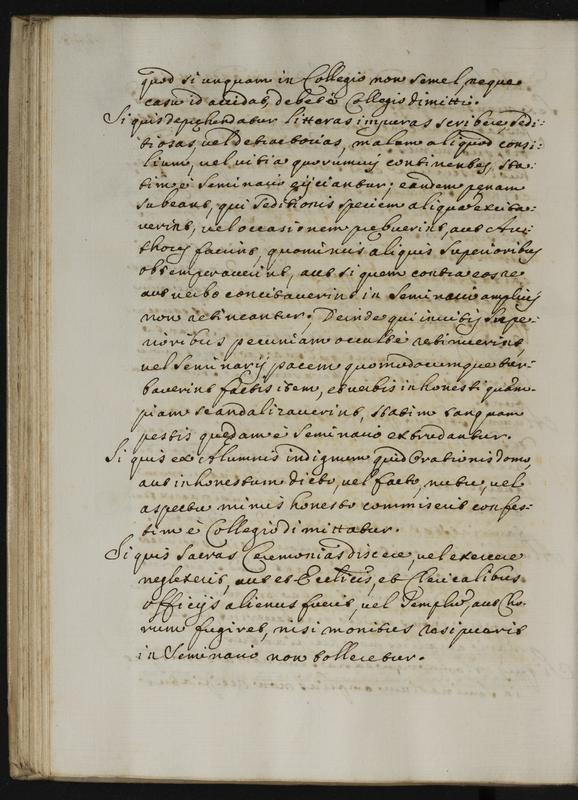 quod si unquam in Collegio non semel, neque
casu id accidat, debet è Collegio dimitti.
Si quis depręhendatur litteras impuras scribere, Sedi-
tiosas, vel detractorias, malum aliquod consi-
lium, vel vitia quorumvis continentes, sta-
tim è Seminario eijciantur; eandem pęnam
subeant, qui Seditionis speciem aliquā excita-
verint, vel occasionem prębuerint, aut Au-
thores fuerint, quominus aliquis Superioribus
obtemperaverint, aut si quem contra eos re
aut verbo concitaverint in Seminario amplius
non retineantur. Deinde qui invitis Supe-
rioribus pecuniam occultè retinuerint,
vel Seminarij pacem quomodocumque tur-
baverint factis item, et verbis inhonesti quem-
piam scandalizaverint, statim tanquam
pestis quędam è Seminario extrudantur.
Si quis ex Alumnis indignum quid Orationis domo,
aut inhonestum dicto, vel facto, nutu, vel
aspectu minus honesto commiserit confes-
tim è Collegio dimittatur.
Si quis Sacras Ceremonias discere, vel exercere
neglexerit, aut et Ecclicis, et Clericalibus
officijs alienus fuerit, vel Templū, aut Cho-
rum fugiret, nisi monitus resipuerit
in Seminario non tolleretur.